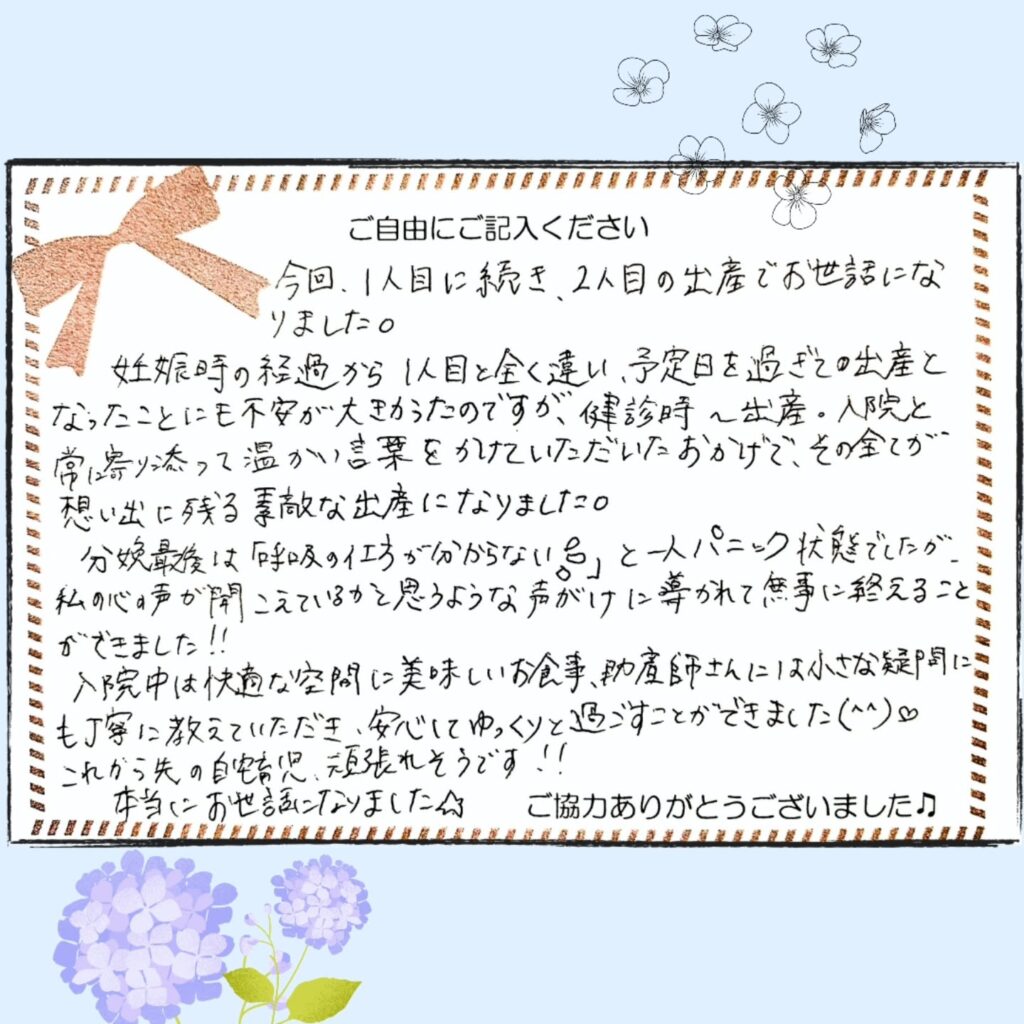 ご自由にご記入ください
今回、1人目に続き、2人目の出産でお世話にな
りました。
妊娠時の経過から1人目と全く違い、予定日を過ぎての出産と
なったことにも不安が大きかったのですが、健診時〜出産。入院と
常に寄り添って温かい言葉をかけていただいたおかげで、その全てが
想い出に残る素敵な出産になりました。
分娩最後は「呼吸の仕方が分からない」と一人パニック状態でしたが、
私の心の声が聞こえているかと思うような声がけに導かれて無事に終えること
ができました!!
入院中は快適な空間に美味しいお食事、助産師さんには小さな疑問に
も丁寧に教えていただき、安心してゆっくりと過ごすことができました(^^)♡
これから先の自宅育児、頑張れそうです!!
本当にお世話になりました☆
ご協力ありがとうございました♫